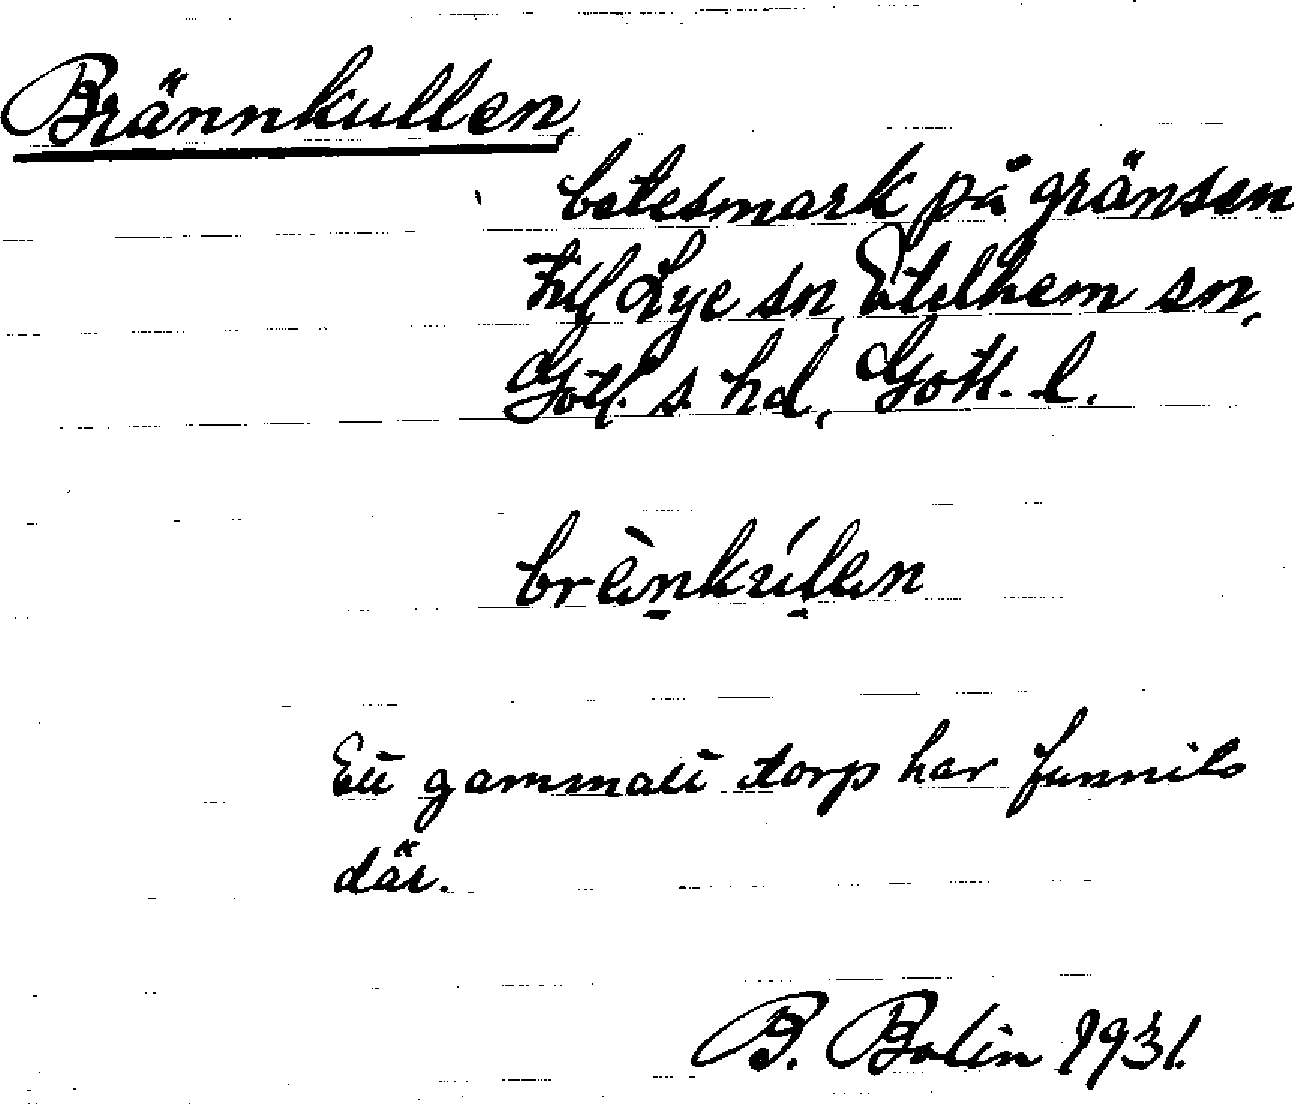 Brännkullen,
betesmark på gränsen
till Lye sn, Etelhem sn,
Gotl. s. hd, Gotl. l.
brènkúlen
Ett gammalt torp har funnits
där.
B. Bolin 1931.